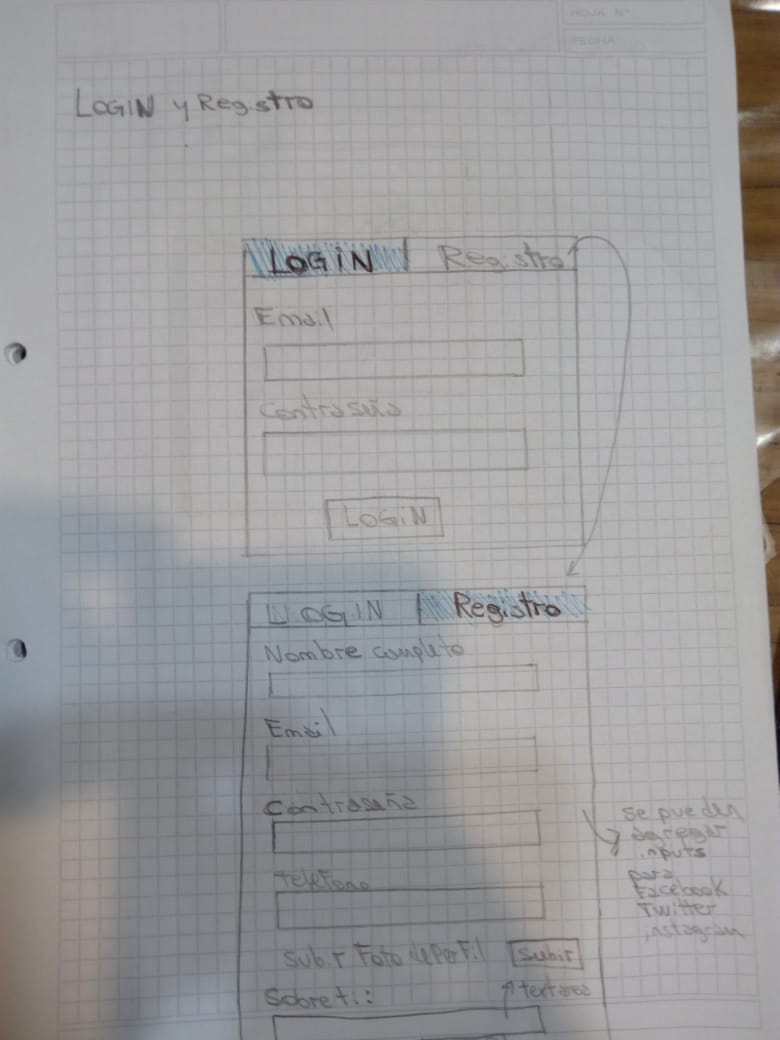 HOJA N°
FECHA
LOGIN y Registro
LOGIN Registro
Email
Contraseña
LOGIN
LOGIN Registro
Nombre completo
Email
Contraseña
Telefono
Subir Foto de Perfil Subir
Sobre ti:
textarea
se pueden
agregar
inputs
para
Facebook
Twitter
instagram